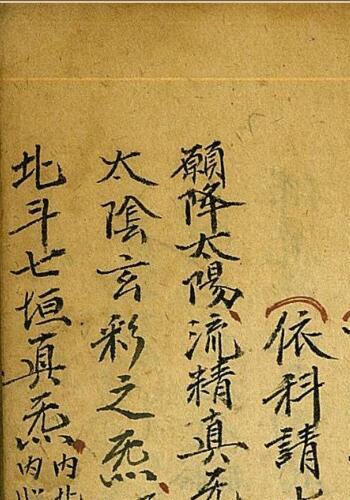 依科請
願降太陽流精真炁
太陰玄彩之炁
北斗七垣真炁
内
内